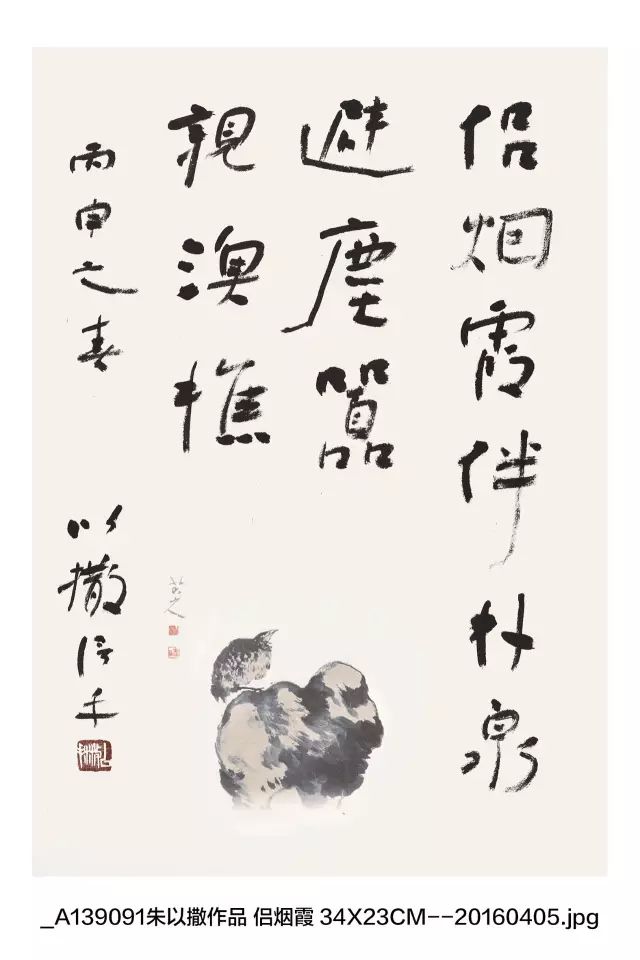 侣烟霞伴林泉
避塵囂
親漁樵
丙申之春
以撒信手
_A139091朱以撒作品 侣烟霞 34X23CM--20160405.jpg